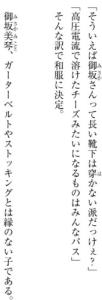 「そういえば御坂さんって長い靴下は穿かない派だっけぇ？」
「高圧電流で溶けたチーズみたいになるものはみんなパス」
そんな訳で和服に決定。
御坂美琴、ガーターベルトやストッキングとは縁のない子である。